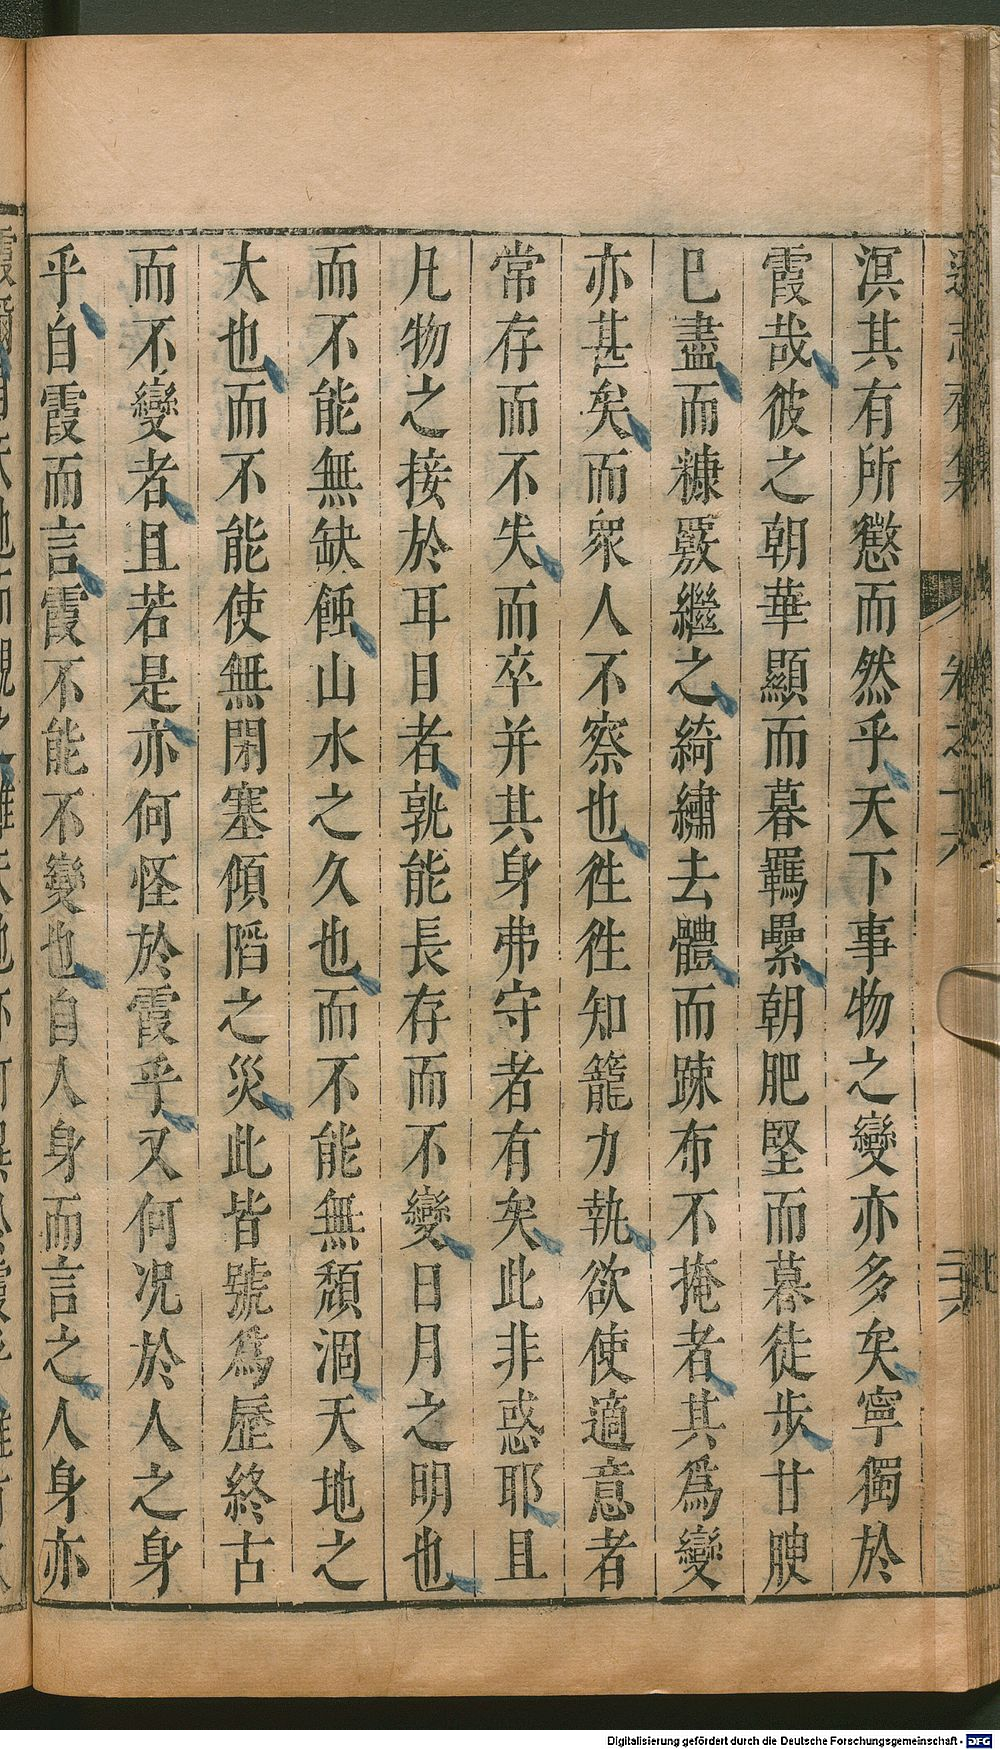 溟其有所懲而然乎天下事物之變亦多矣寧獨於
霞哉彼之朝華顯而暮羈纍朝肥堅而暮徒步甘腴
已盡而糠覈繼之綺繡去體而踈布不掩者其爲變
亦甚矣而眾人不察也徃徃知籠力執欲使適意者
常存而不失而卒并其身弗守者有矣此非惑耶且
凡物之接於耳目者孰能長存而不變日月之明也
而不能無缺蝕山水之久也而不能無頹涸天地之
大也而不能使無閉塞傾陷之災此皆號爲歷終古
而不變者且若是亦何怪於霞乎又何況於人之身
乎自霞而言霞不能不變也自人身而言之人身亦
Digitalisierung gefördert durch die Deutsche Forschungsgemeinschaft - DFG